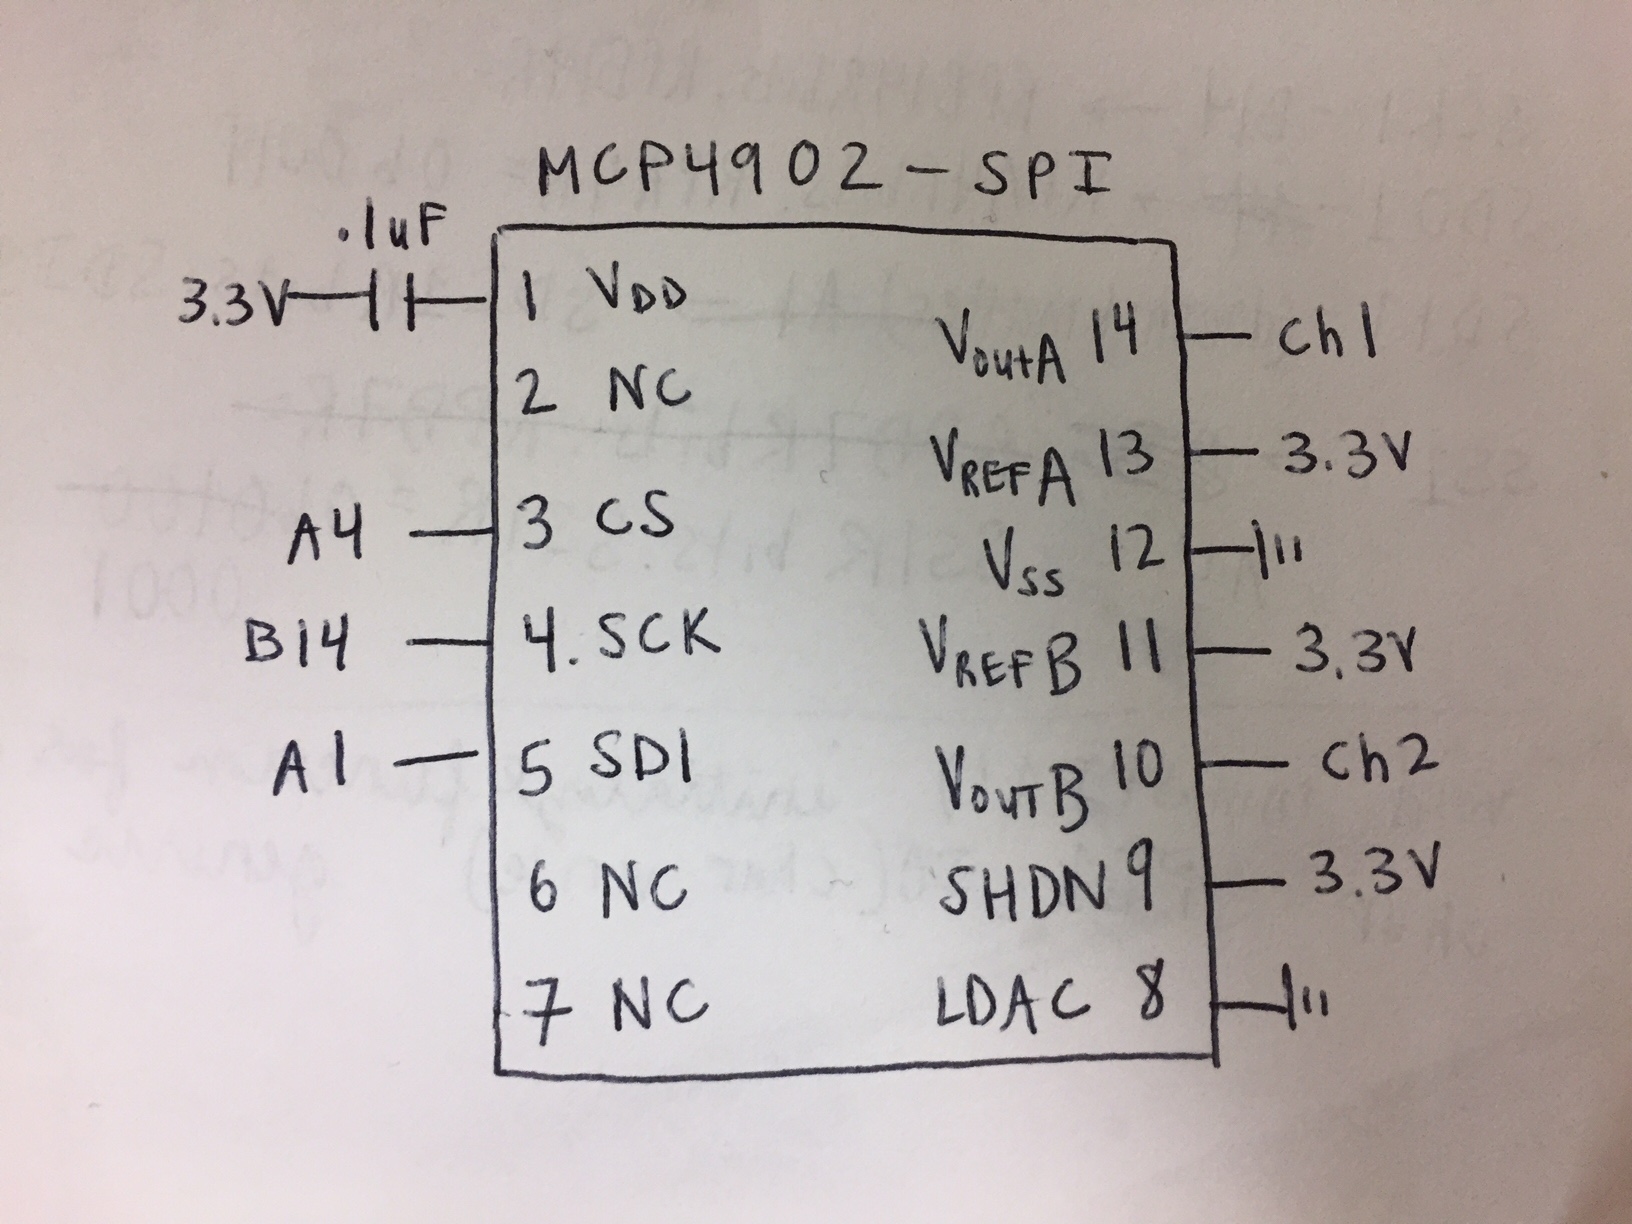 MCP4902-SPI
.1uF
3.3V
1 VDD
2 NC
A4
3 CS
B14
4. SCK
A1
5 SDI
6 NC
7 NC
VoutA 14
Ch1
VREFA 13
3.3V
VSS 12
VREFB 11
3.3V
VOUTB 10
Ch2
SHDN 9
3.3V
LDAC 8